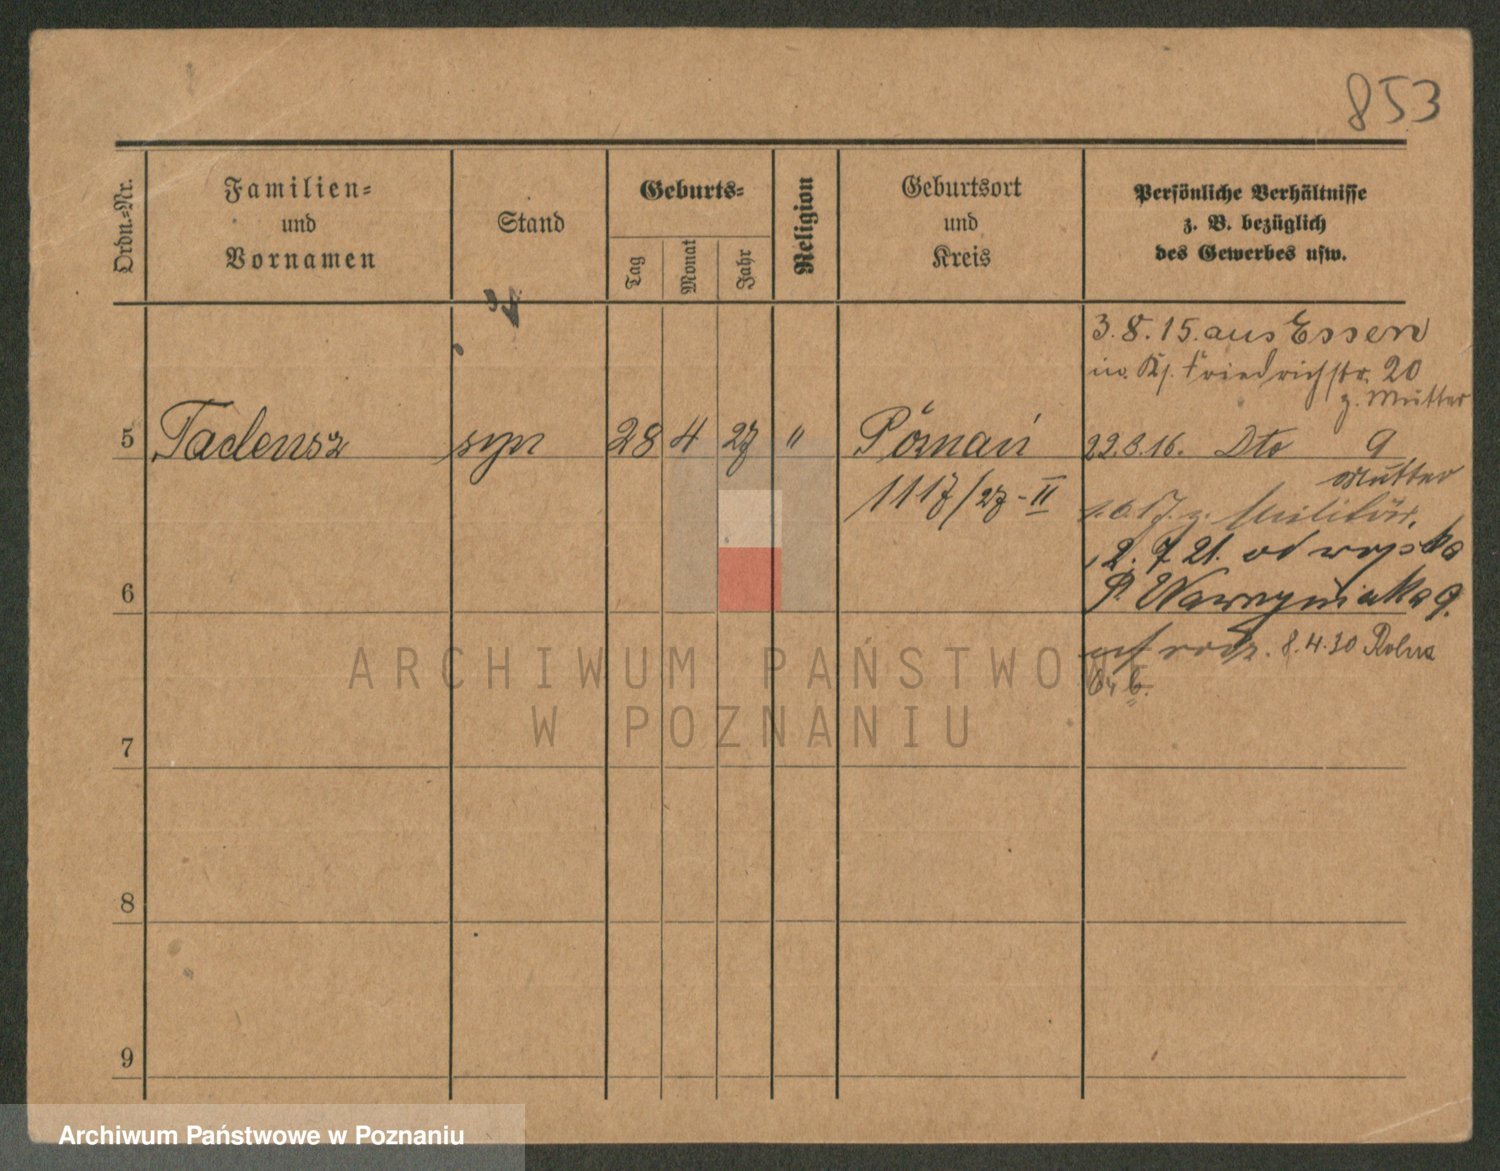 853
Ordn.-Nr.
Familien-
und
Vornamen
Stand
Geburts-
Tag
Monat
Jahr
Religion
Geburtsort
und
Kreis
Persönliche Verhältnisse
z. B. bezüglich
des Gewerbes usw.
3.8.15. aus Essen
Friedrichstr. 20
z. Mutter
5 Tadeusz syn 28 4 27 " Poznań 22.8.16. Dto 9
Mutter
1117/27-II
z. Militär.
2. 7 21. od wojska
P. Wawrzyniaka 9.
6
rodz. 8.4.30 Rolna
7
8
9
ARCHIWUM PAŃSTWOWE
W POZNANIU
Archiwum Państwowe w Poznaniu